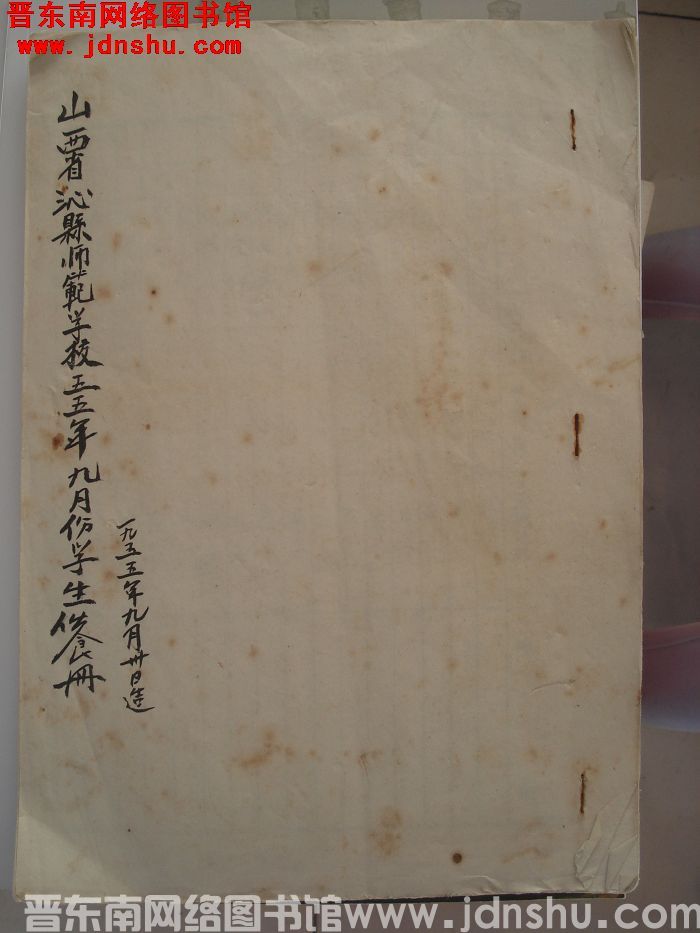 晋东南网络图书馆
www.jdnshu.com
山西省沁縣师範学校五五年九月份学生供餐册
一九五五年九月卅日造
晋东南网络图书馆 www.jdnshu.com